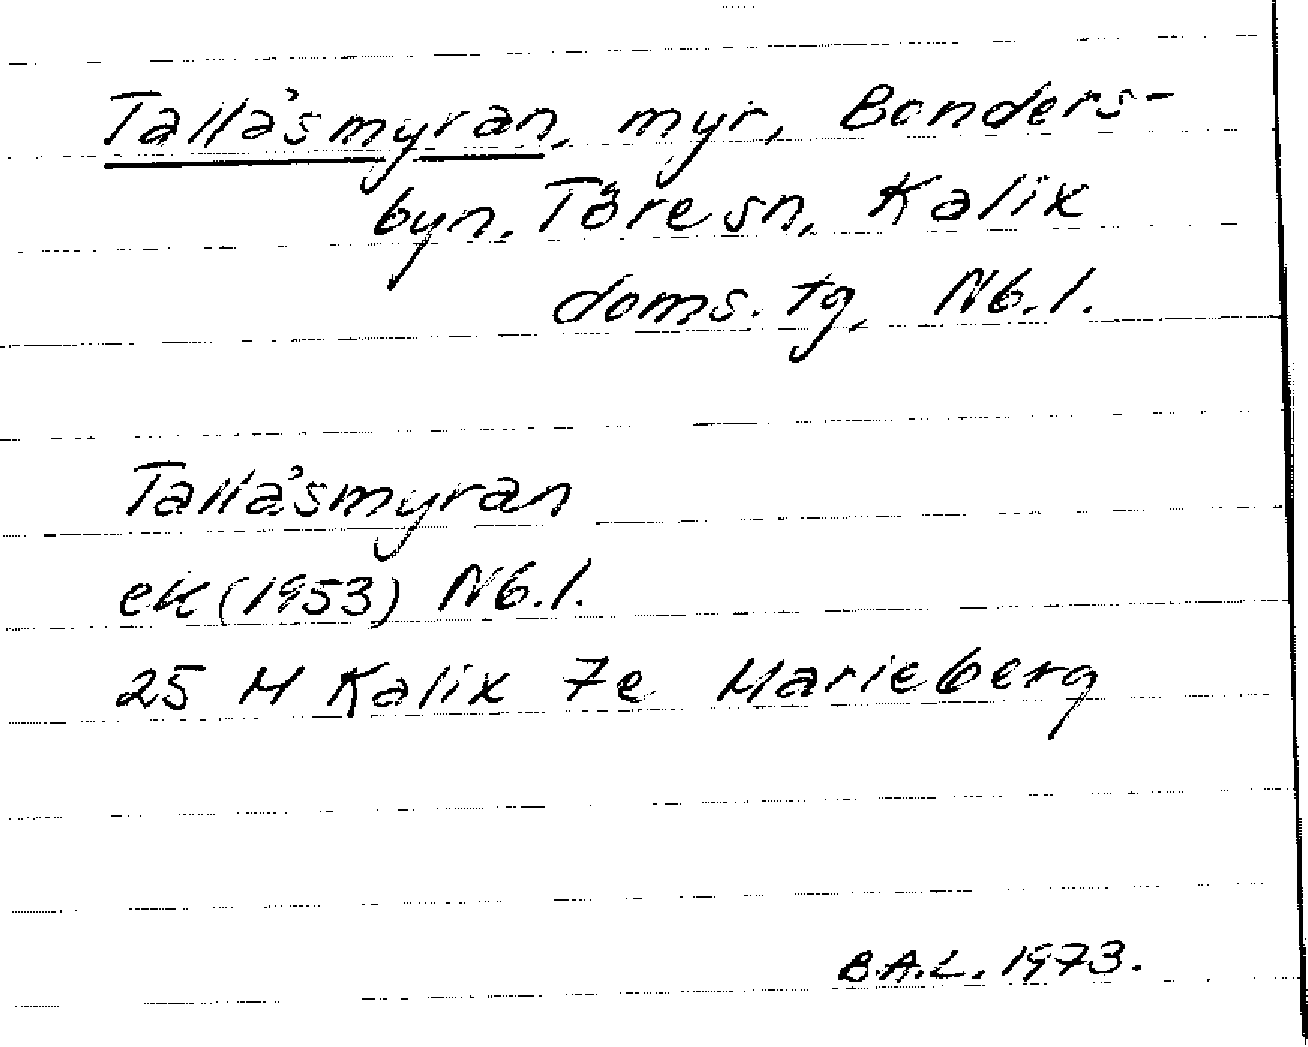 Tallåsmyran, myr, Bonders-
byn, Töre sn, Kalix
doms. tg, Nb. l.
Tallåsmyran
ek (1953) Nb. l.
25 M Kalix 7e Marieberg
B.A.L. 1973.